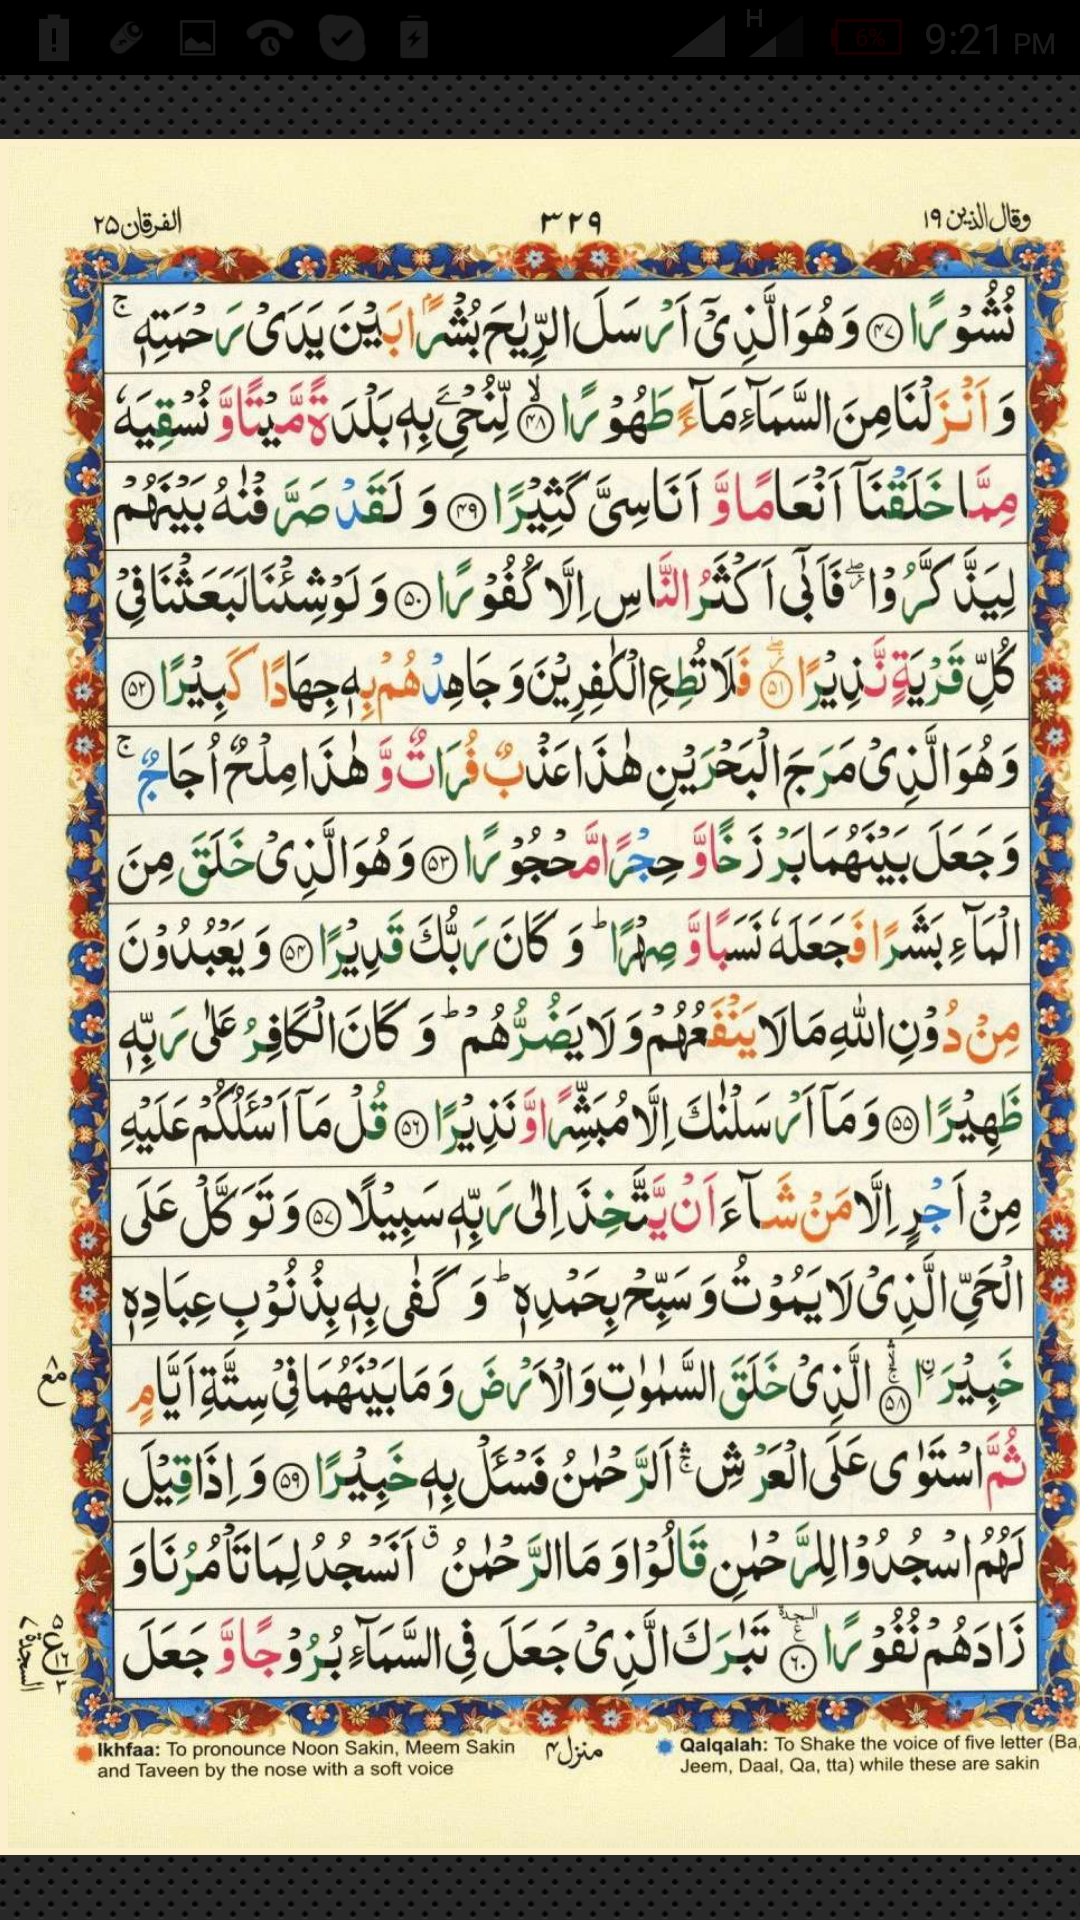 H 6% 9:21 PM
وقال الذین ۱۹ ۳۲۹ الفرقان ۲۵
نُشُوْرًا ﴿۴۷﴾ وَ هُوَ الَّذِیْۤ اَرْسَلَ الرِّیٰحَ بُشْرًۢا بَیْنَ یَدَیْ رَحْمَتِهٖ ۚ
وَ اَنْزَلْنَا مِنَ السَّمَآءِ مَآءً طَهُوْرًا ﴿۴۸﴾ۙ لِّنُحْیِۧ بِهٖ بَلْدَةً مَّیْتًا وَّ نُسْقِیَهٗ
مِمَّا خَلَقْنَاۤ اَنْعَامًا وَّ اَنَاسِیَّ كَثِیْرًا ﴿۴۹﴾ وَ لَقَدْ صَرَّفْنٰهُ بَیْنَهُمْ
لِیَذَّكَّرُوْا ۖؗ فَاَبٰۤی اَكْثَرُ النَّاسِ اِلَّا كُفُوْرًا ﴿۵۰﴾ وَ لَوْ شِئْنَا لَبَعَثْنَا فِیْ
كُلِّ قَرْیَةٍ نَّذِیْرًا ﴿۵۱﴾ۖؗ فَلَا تُطِعِ الْكٰفِرِیْنَ وَ جَاهِدْهُمْ بِهٖ جِهَادًا كَبِیْرًا ﴿۵۲﴾
وَ هُوَ الَّذِیْ مَرَجَ الْبَحْرَیْنِ هٰذَا عَذْبٌ فُرَاتٌ وَّ هٰذَا مِلْحٌ اُجَاجٌ ۚ
وَ جَعَلَ بَیْنَهُمَا بَرْزَخًا وَّ حِجْرًا مَّحْجُوْرًا ﴿۵۳﴾ وَ هُوَ الَّذِیْ خَلَقَ مِنَ
الْمَآءِ بَشَرًا فَجَعَلَهٗ نَسَبًا وَّ صِهْرًا ؕ وَ كَانَ رَبُّكَ قَدِیْرًا ﴿۵۴﴾ وَ یَعْبُدُوْنَ
مِنْ دُوْنِ اللّٰهِ مَا لَا یَنْفَعُهُمْ وَ لَا یَضُرُّهُمْ ؕ وَ كَانَ الْكَافِرُ عَلٰی رَبِّهٖ
ظَهِیْرًا ﴿۵۵﴾ وَ مَاۤ اَرْسَلْنٰكَ اِلَّا مُبَشِّرًا وَّ نَذِیْرًا ﴿۵۶﴾ قُلْ مَاۤ اَسْـَٔلُكُمْ عَلَیْهِ
مِنْ اَجْرٍ اِلَّا مَنْ شَآءَ اَنْ یَّتَّخِذَ اِلٰی رَبِّهٖ سَبِیْلًا ﴿۵۷﴾ وَ تَوَكَّلْ عَلَی
الْحَیِّ الَّذِیْ لَا یَمُوْتُ وَ سَبِّحْ بِحَمْدِهٖ ؕ وَ كَفٰی بِهٖ بِذُنُوْبِ عِبَادِهٖ
خَبِیْرَا ﰳ ﴿۵۸﴾ۚۛ الَّذِیْ خَلَقَ السَّمٰوٰتِ وَ الْاَرْضَ وَ مَا بَیْنَهُمَا فِیْ سِتَّةِ اَیَّامٍ
ثُمَّ اسْتَوٰی عَلَی الْعَرْشِ ۛۚ اَلرَّحْمٰنُ فَسْـَٔلْ بِهٖ خَبِیْرًا ﴿۵۹﴾ وَ اِذَا قِیْلَ
لَهُمُ اسْجُدُوْا لِلرَّحْمٰنِ قَالُوْا وَ مَا الرَّحْمٰنُ ۗ اَنَسْجُدُ لِمَا تَاْمُرُنَا وَ
زَادَهُمْ نُفُوْرًا ﴿۶۰﴾ السجدة تَبٰرَكَ الَّذِیْ جَعَلَ فِی السَّمَآءِ بُرُوْجًا وَّ جَعَلَ
مع ۸
السجدة ۷
۵ ع ۱۶ ۳
Ikhfaa: To pronounce Noon Sakin, Meem Sakin
and Taveen by the nose with a soft voice
منزل ۴
Qalqalah: To Shake the voice of five letter (Ba,
Jeem, Daal, Qa, tta) while these are sakin